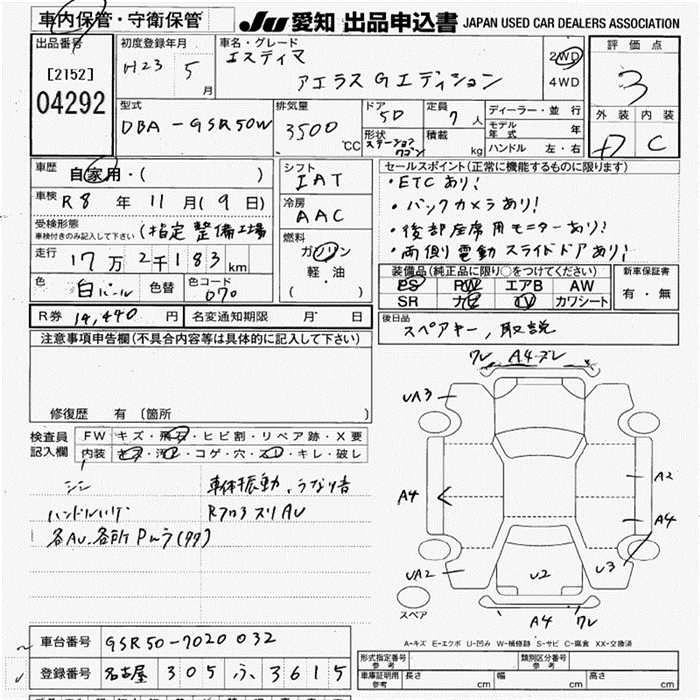 車内保管・守衛保管
JU 愛知 出品申込書 JAPAN USED CAR DEALERS ASSOCIATION
出品番号
[2152]
04292
初度登録年月
H23 5月
車名・グレード
エスティマ
アエラス Gエディション
2WD
4WD
評価点
3
外装 内装
C
型式
DBA-GSR50W
排気量
3500 CC
ドア 5D
形状 ステーションワゴン
定員 7人
積載 kg
ディーラー・並行
モデル年式 年
ハンドル 左・右
車歴 自家用・( )
車検 R8年11月(9日)
受検形態 車検付きのみ記入して下さい (指定整備工場
走行 17万2千183km
色 白パール 色替 色コード 070
シフト
IAT
冷房
AAC
燃料
ガソリン
軽油
( )
セールスポイント(正常に機能するものに限ります)
・ETCあり!
・バックカメラあり!
・後部座席用モニターあり!
・両側電動スライドドアあり!
装備品(純正品に限り○をつけてください)
PS PW エアB AW
SR ナビ TV カワシート
新車保証書
有・無
R券 14,440円 名変通知期限 月 日
後日品
スペアキー, 取説
注意事項申告欄(不具合内容等は具体的に記入して下さい)
修復歴 有 (箇所 )
検査員記入欄
FW キズ・飛石・ヒビ割・リペア跡・X要
内装 キズ・汚レ・コゲ・穴・スレ・キレ・破レ
シミ 車体振動、うなり音
ハンドルハゲ RフロアスリAU
ワレ A4
UA3
A4
A2
A4
UA2
U2
U3
A4 ワレ
スペア
A-キズ E-エクボ U-凹み W-補修跡 S-サビ C-腐食 XX-交換済
車台番号 GSR50-7020032
登録番号 名古屋 305 ふ 3615
形式指定番号 参考
類別区分番号 参考
車庫証明用 参考 長さ cm 幅 cm 高さ cm